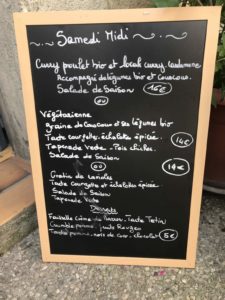 Samedi Midi
Curry poulet bio et local curry. cardamome
Accompagné de légumes bio et Couscous.
Salade de Saison 16€
ou
Végétarienne
graine de Couscous et ses légumes bio
Tarte courgette. échalottes épicée. 14€
Tapenade Verte - Pois chiches.
Salade de Saison
ou 14€
Gratin de
Tarte Courgette et échalottes épicée
Salade de Saison
Tapenade Verte
Desserts
Faisselle Crème de Marron - Tarte Tatin
Crumble pomme. fruits Rouges
Tarte pomme. noix de Coco - chocolat 5€